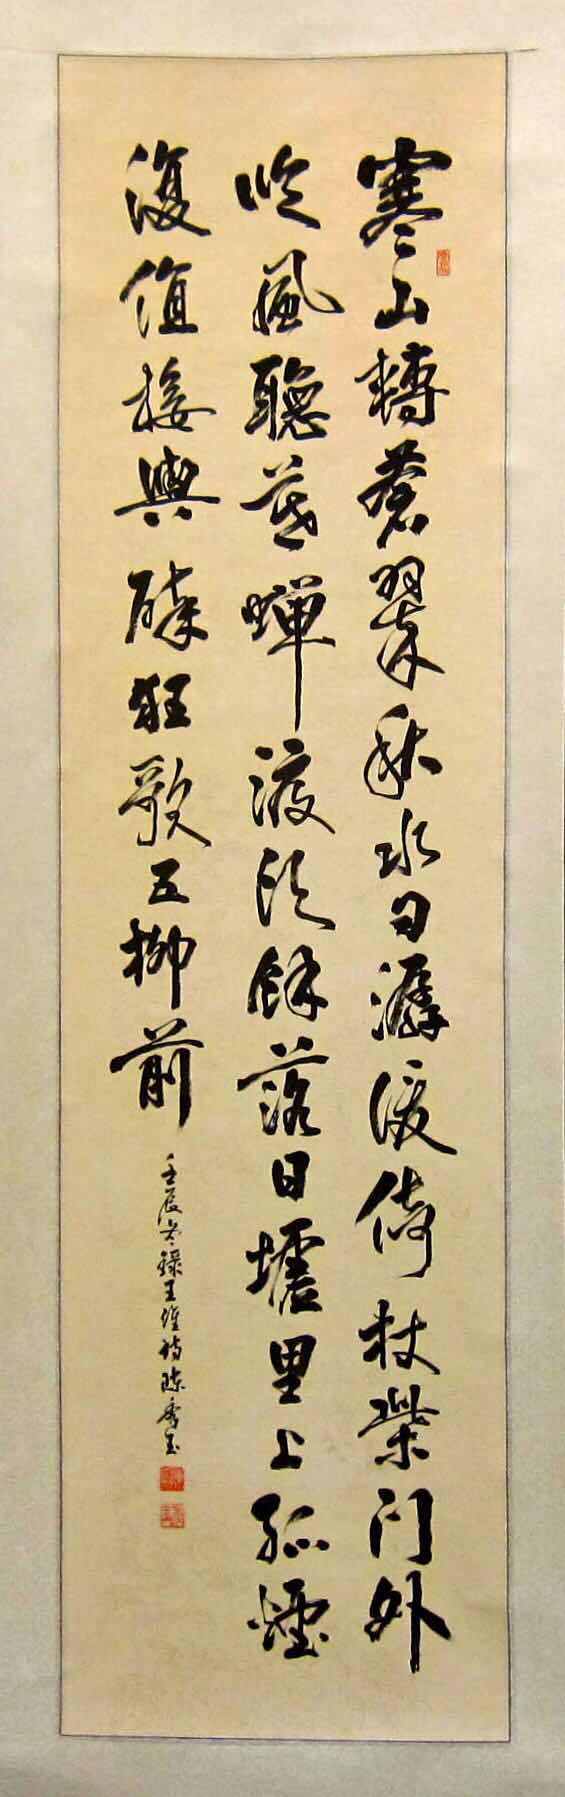 寒山轉蒼翠秋水日潺湲倚杖柴門外
臨風聽暮蟬渡頭餘落日墟里上孤煙
復值接輿醉狂歌五柳前
壬辰冬錄王維詩陳秀玉